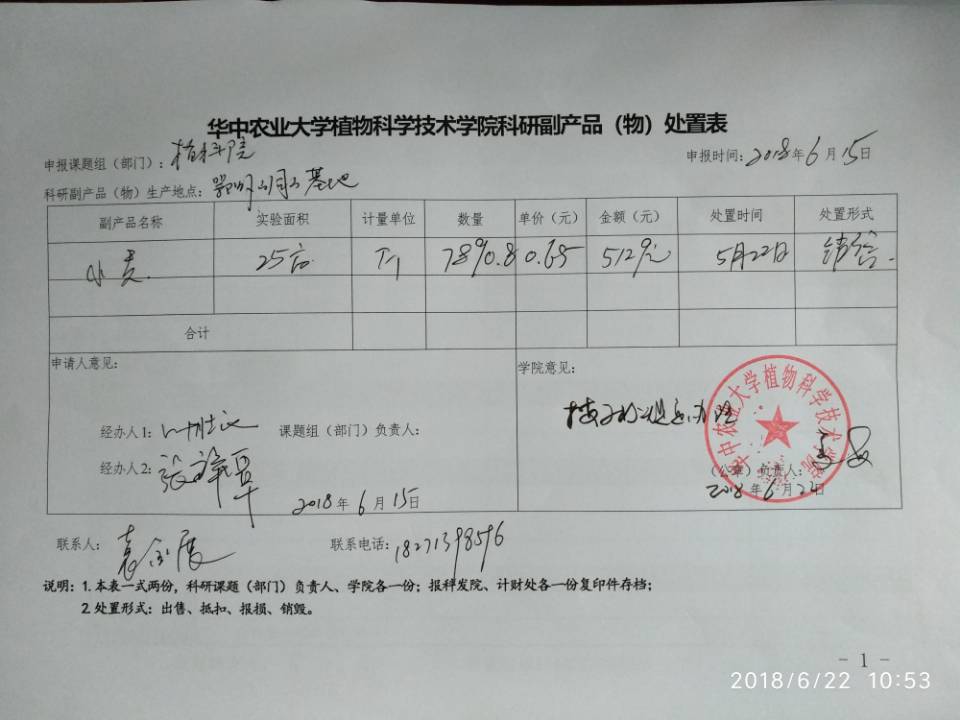 华中农业大学植物科学技术学院科研副产品（物）处置表
申报课题组（部门）：植科院 申报时间：2018年6月15日
科研副产品（物）生产地点：鄂州 基地
副产品名称 实验面积 计量单位 数量 单价（元） 金额（元） 处置时间 处置形式
小麦 25亩 斤 0.65 512元 5月22日
合计
申请人意见： 学院意见：
经办人1： 课题组（部门）负责人：
经办人2：张 （公章）负责人：
2018年6月15日 2018年6月22日
华中农业大学植物科学技术学院
联系人：袁金展 联系电话：18271398596
说明：1.本表一式两份，科研课题（部门）负责人、学院各一份；报科发院、计财处各一份复印件存档；
2.处置形式：出售、抵扣、报损、销毁。
- 1 -
2018/6/22 10:53